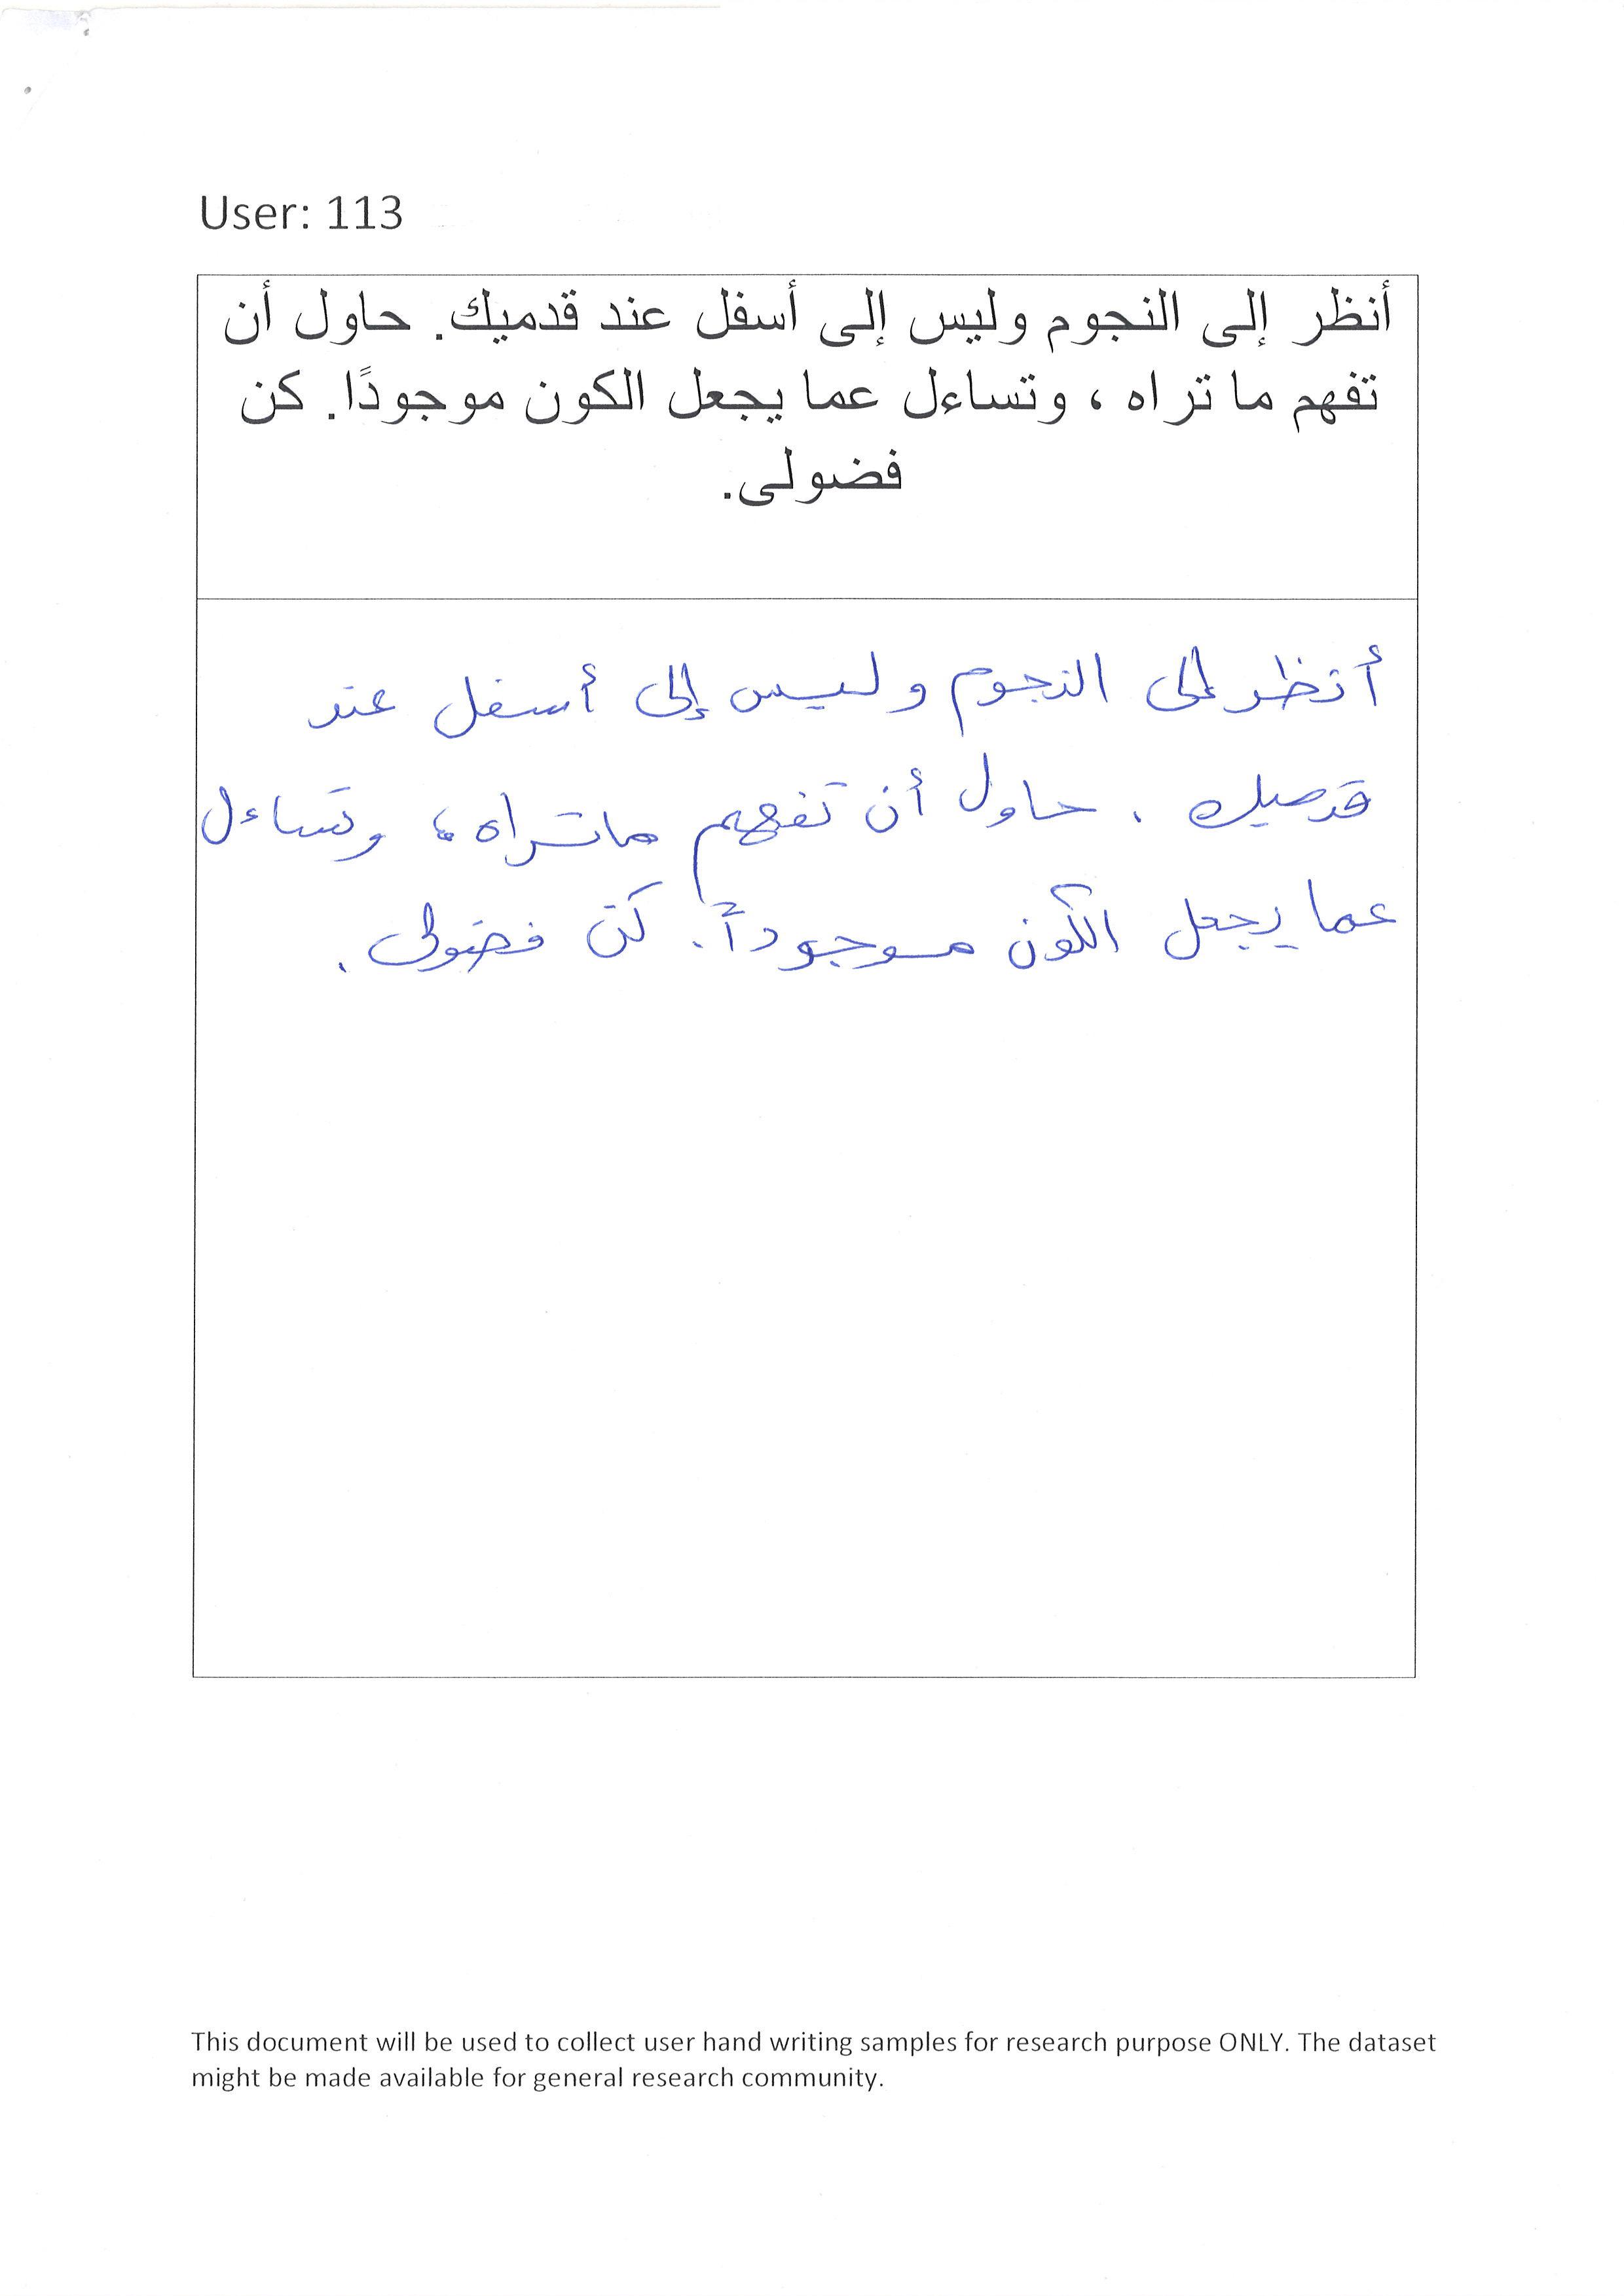 User: 113
أنظر إلى النجوم وليس إلى أسفل عند قدميك. حاول أن
تفهم ما تراه ، وتساءل عما يجعل الكون موجودًا. كن
فضولى.
أنظر إلى النجوم وليس إلى أسفل عند
قدميك . حاول أن تفهم ماتراه ، وتساءل
عما يجعل الكون موجوداً. كن فضولى .
This document will be used to collect user hand writing samples for research purpose ONLY. The dataset
might be made available for general research community.